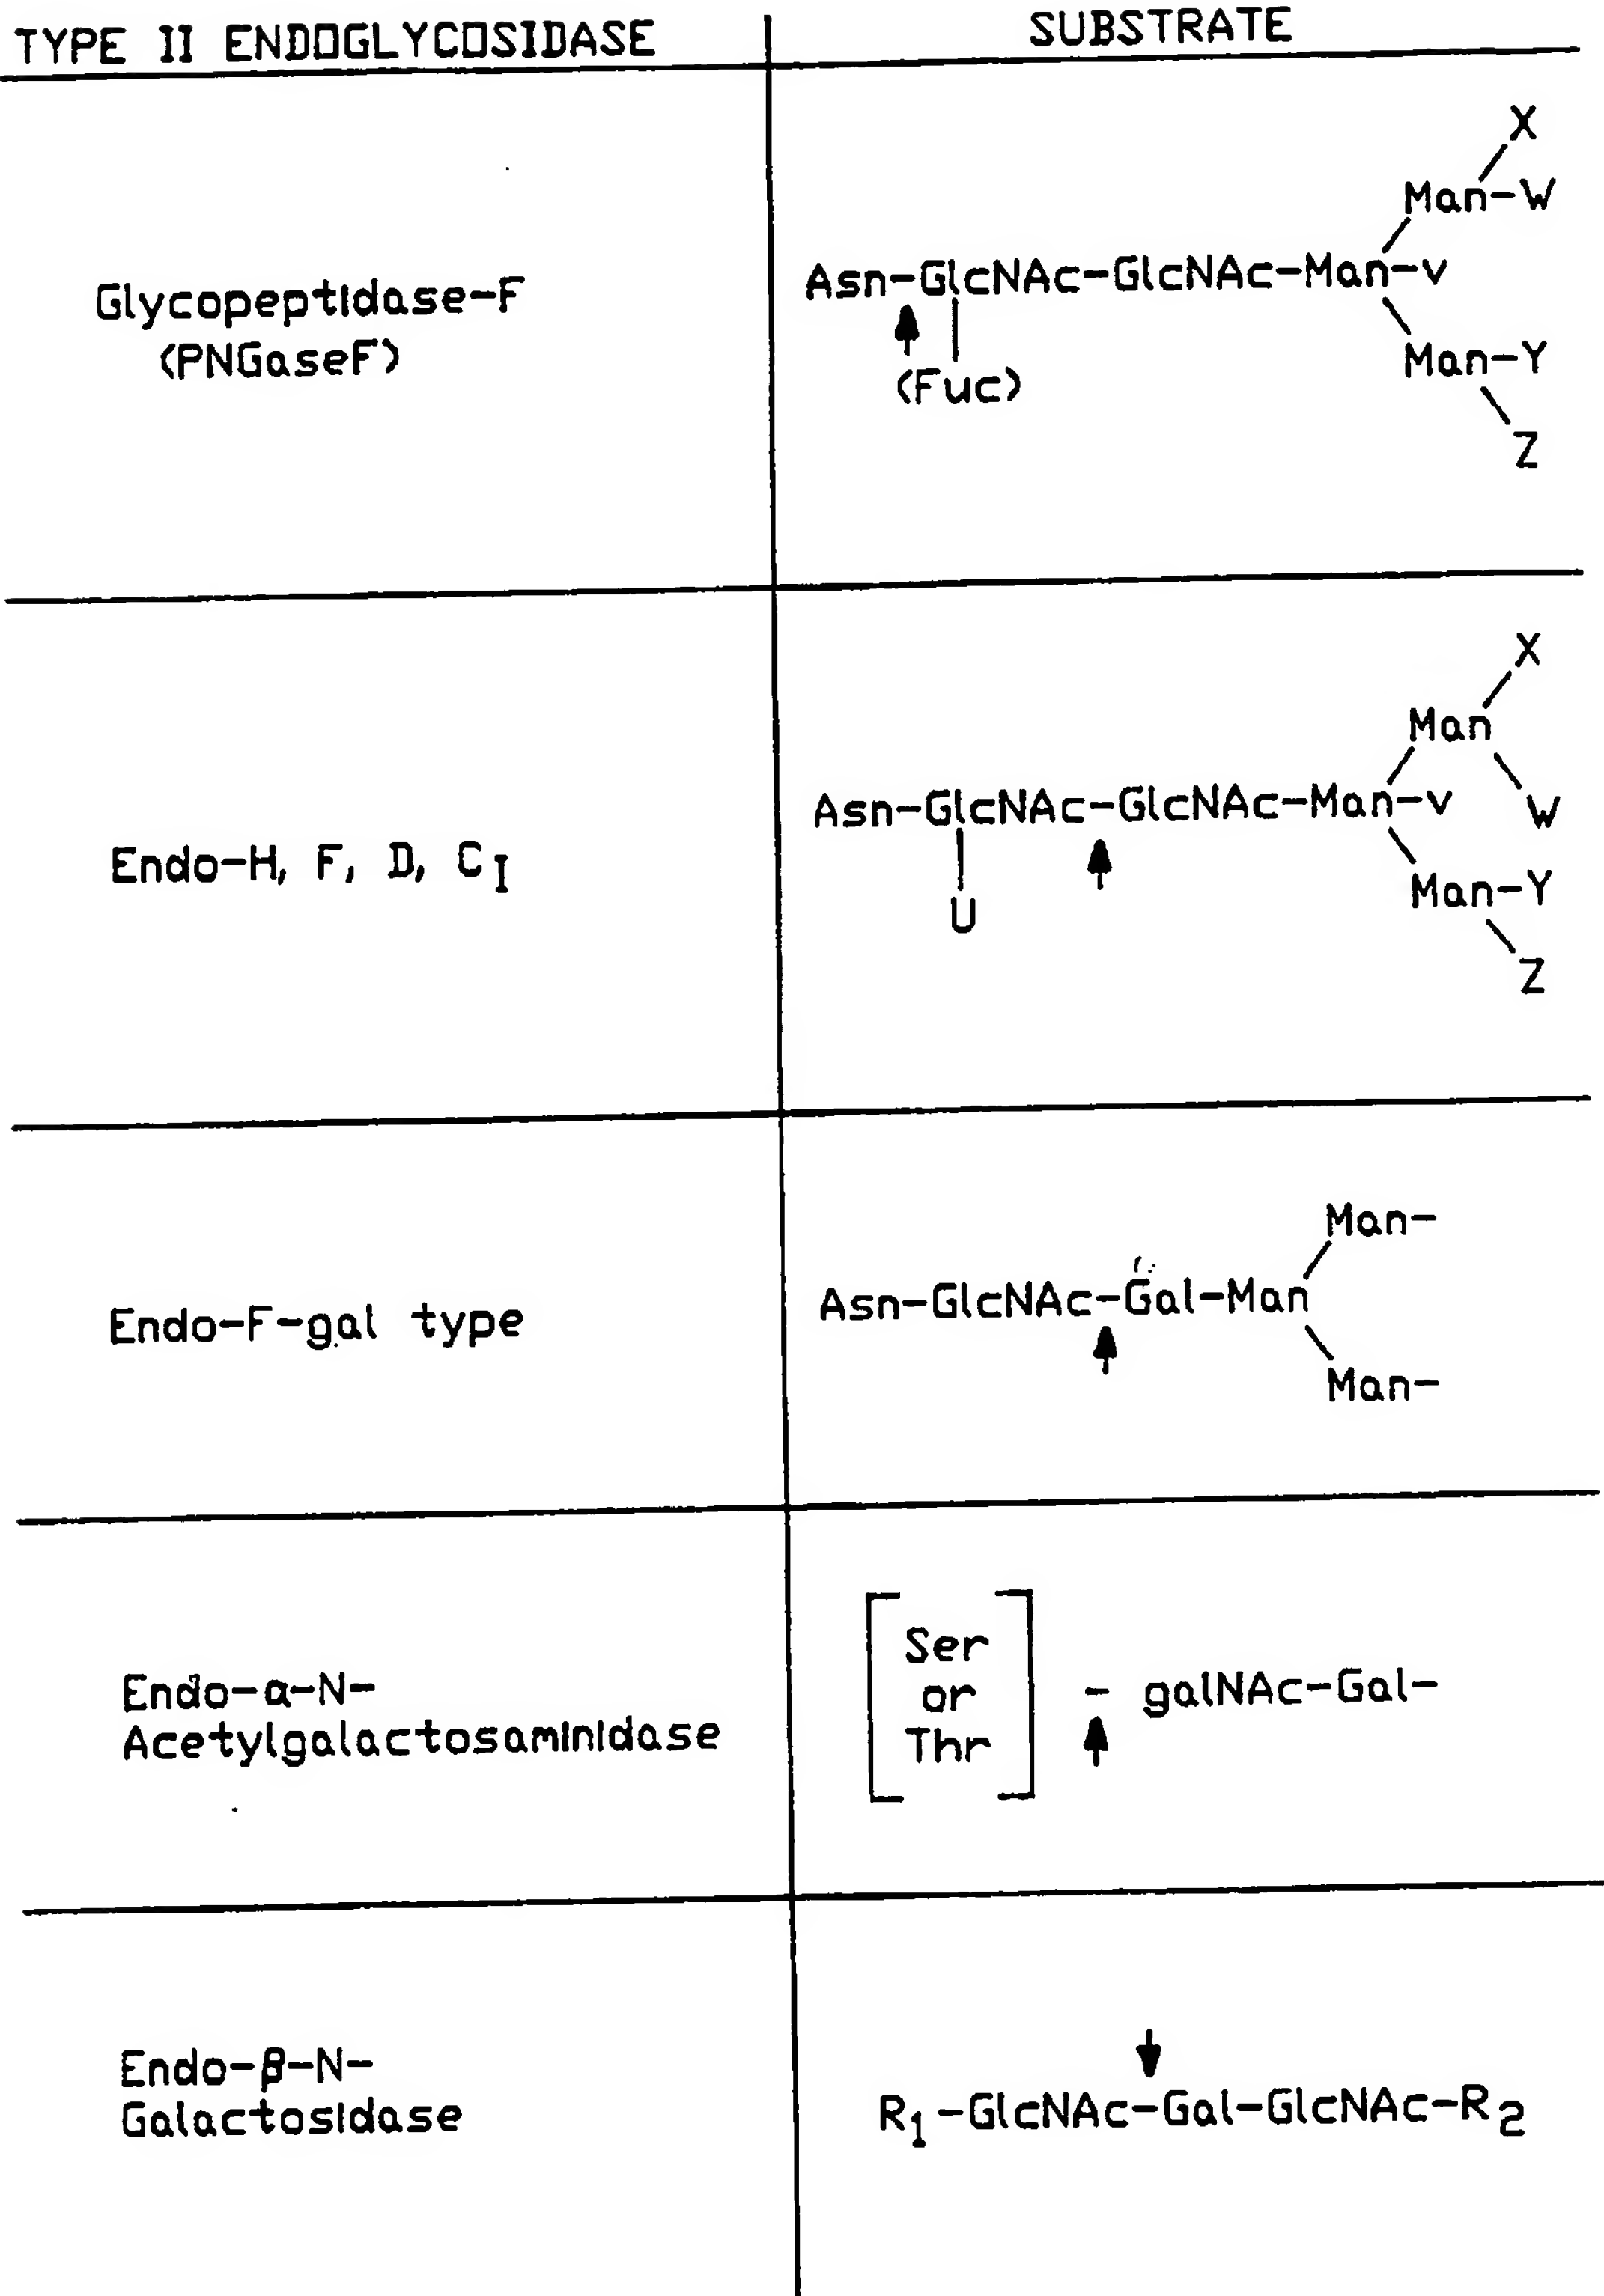 TYPE II ENDOGLYCOSIDASE
SUBSTRATE
Glycopeptidase-F
(PNGaseF)
X
Man-W
Asn-GlcNAc-GlcNAc-Man-v
(Fuc)
Man-Y
Z
Endo-H, F, D, CI
X
Man
Asn-GlcNAc-GlcNAc-Man-v
W
U
Man-Y
Z
Endo-F-gal type
Man-
Asn-GlcNAc-Gal-Man
Man-
Endo-α-N-
Acetylgalactosaminidase
Ser
or
Thr
- galNAc-Gal-
Endo-β-N-
Galactosidase
R1-GlcNAc-Gal-GlcNAc-R2